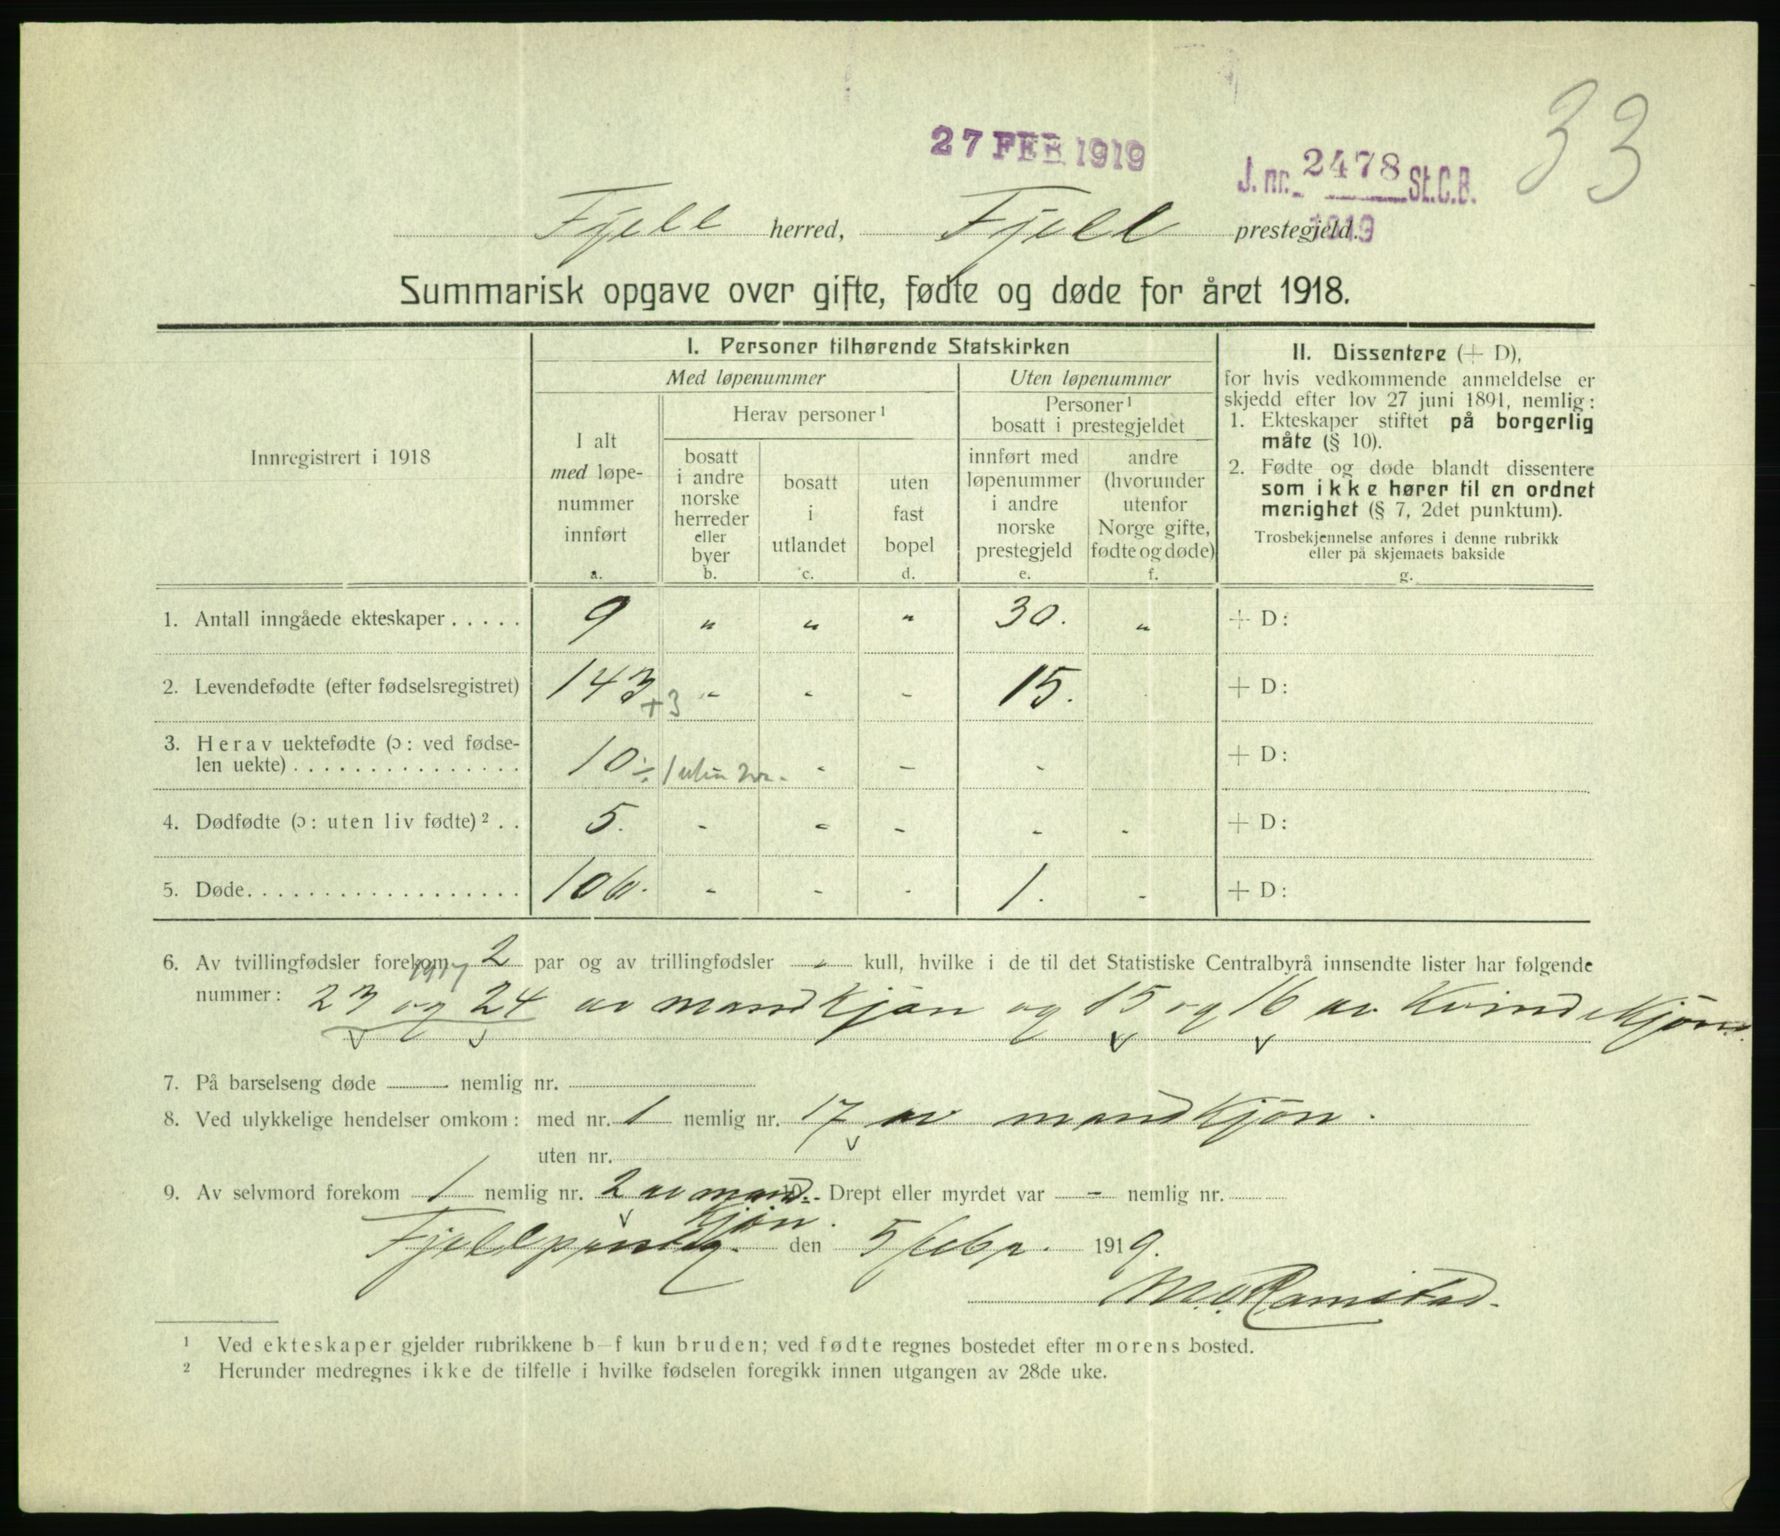 33
27 FEB 1919
J. nr. 2478 St.C.B.
1919
Fjell herred, Fjell prestegjeld.
Summarisk opgave over gifte, fødte og døde for året 1918.
Innregistrert i 1918
I. Personer tilhørende Statskirken
Med løpenummer
Uten løpenummer
I alt
med løpe-
nummer
innført
a.
Herav personer ¹
bosatt
i andre
norske
herreder
eller
byer
b.
bosatt
i
utlandet
c.
uten
fast
bopel
d.
Personer ¹
bosatt i prestegjeldet
innført med
løpenummer
i andre
norske
prestegjeld
e.
andre
(hvorunder
utenfor
Norge gifte,
fødte og døde)
f.
II. Dissentere (+ D),
for hvis vedkommende anmeldelse er
skjedd efter lov 27 juni 1891, nemlig:
1. Ekteskaper stiftet på borgerlig
måte (§ 10).
2. Fødte og døde blandt dissentere
som ikke hører til en ordnet
menighet (§ 7, 2det punktum).
Trosbekjennelse anføres i denne rubrikk
eller på skjemaets bakside
g.
1. Antall inngåede ekteskaper . . . . . 9 " " " 30. " + D:
2. Levendefødte (efter fødselsregistret) 143 +3 - - - 15. + D:
3. Herav uektefødte (ɔ: ved fødse-
len uekte) . . . . . . . . . . . . . . . 10 ÷ 1 - - - + D:
4. Dødfødte (ɔ: uten liv fødte) ² . . 5. - - - - - + D:
5. Døde. . . . . . . . . . . . . . . . . . 106. - - - 1. - + D:
6. Av tvillingfødsler forekom 2 par og av trillingfødsler - kull, hvilke i de til det Statistiske Centralbyrå innsendte lister har følgende
nummer: 23 og 24 av mandkjøn og 15 og 16 av Kvindekjøn.
7. På barselseng døde nemlig nr.
8. Ved ulykkelige hendelser omkom: med nr. 1 nemlig nr. 17 av mandkjøn.
uten nr.
9. Av selvmord forekom 1 nemlig nr. 2 av mand- Drept eller myrdet var - nemlig nr.
kjøn.
den 5 febr. 1919.
M. O. Ramstad.
¹ Ved ekteskaper gjelder rubrikkene b–f kun bruden; ved fødte regnes bostedet efter morens bosted.
² Herunder medregnes ikke de tilfelle i hvilke fødselen foregikk innen utgangen av 28de uke.